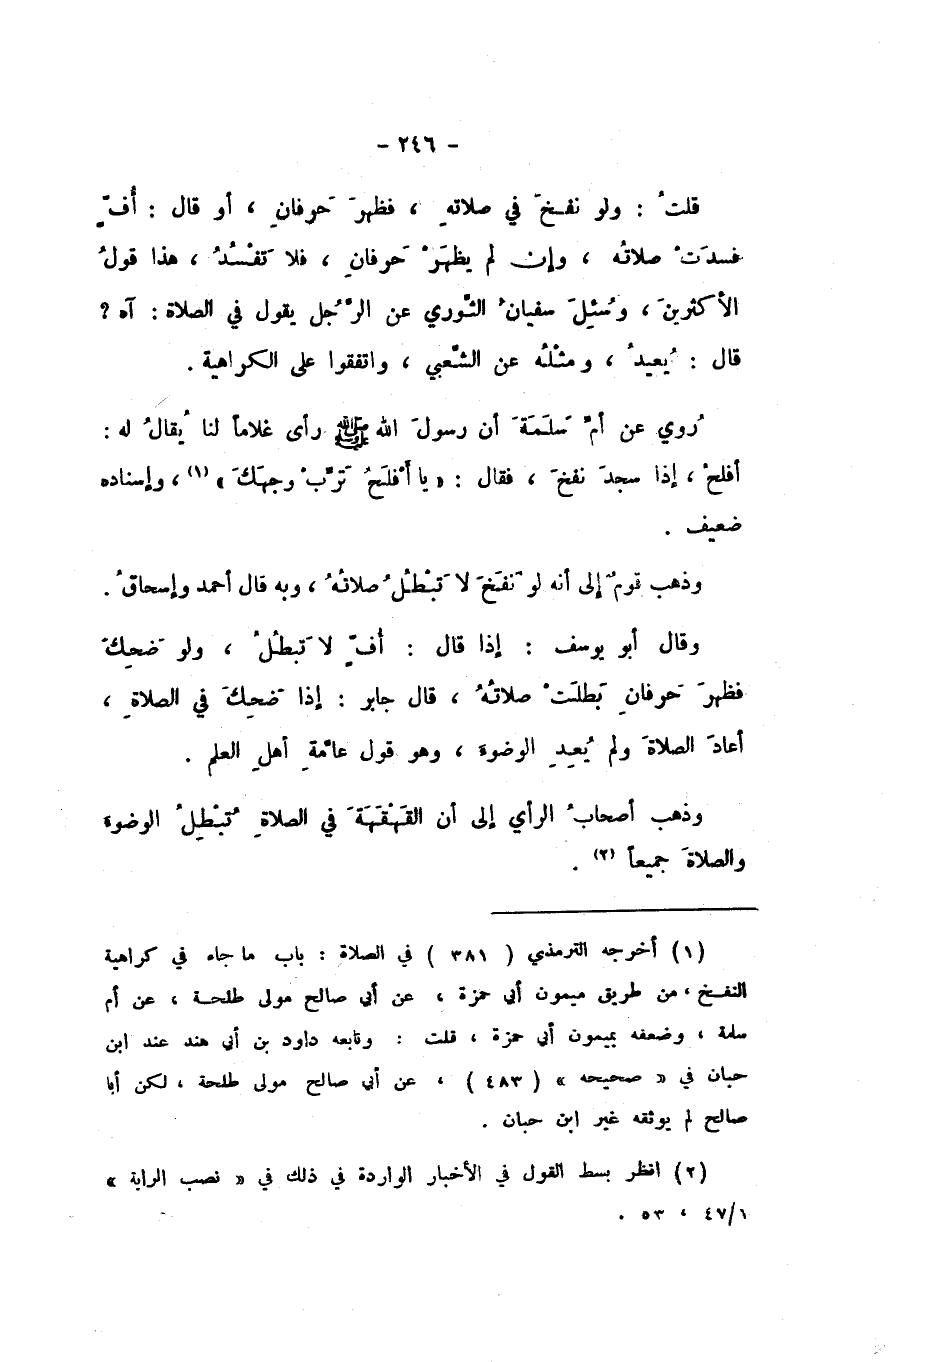 - ٢٤٦ -
قلتُ : ولو نفخَ في صلاتهِ ، فظهرَ حَرفانِ ، أو قال : أُفٍّ
فسدَتْ صلاتُه ، وإن لم يظهَرْ حَرفانِ ، فلا تَفْسُدُ ، هذا قولُ
الأكثرينَ ، وسُئِلَ سفيانُ الثَّوري عن الرَّجُل يقول في الصلاة : آه ؟
قال : يُعيدُ ، ومثْلُه عن الشَّعبي ، واتفقوا على الكراهية .
رُوي عن أمِّ سَلَمَةَ أن رسولَ الله ﷺ رأى غلاماً لنا يُقالُ له :
أفلحْ ، إذا سجدَ نفخَ ، فقال : « يا أفْلَحُ تَرِّبْ وجهَكَ » (١) ، وإسناده
ضعيف .
وذهب قومٌ إلى أنه لو نَفَخَ لا تَبْطُلُ صلاتُهُ ، وبه قال أحمد وإسحاقُ .
وقال أبو يوسف : إذا قال : أُفٍّ لا تَبطُلُ ، ولو ضَحِكَ
فظهرَ حَرفانِ بَطلَتْ صلاتُهُ ، قال جابر : إذا ضَحِكَ في الصلاةِ ،
أعادَ الصلاةَ ولم يُعِدِ الوضوءَ ، وهو قول عامَّةِ أهلِ العلم .
وذهب أصحابُ الرأي إلى أن القَهْقَهَةَ في الصلاةِ تُبْطِلُ الوضوءَ
والصلاةَ جميعاً (٢) .
(١) أخرجه الترمذي ( ٣٨١ ) في الصلاة : باب ما جاء في كراهية
النفخ ، من طريق ميمون أبي حمزة ، عن أبي صالح مولى طلحة ، عن أم
سلمة ، وضعفه بميمون أبي حمزة ، قلت : وتابعه داود بن أبي هند عند ابن
حبان في « صحيحه » ( ٤٨٣ ) ، عن أبي صالح مولى طلحة ، لكن أبا
صالح لم يوثقه غير ابن حبان .
(٢) انظر بسط القول في الأخبار الواردة في ذلك في « نصب الراية »
٤٧/١ ، ٥٣ .